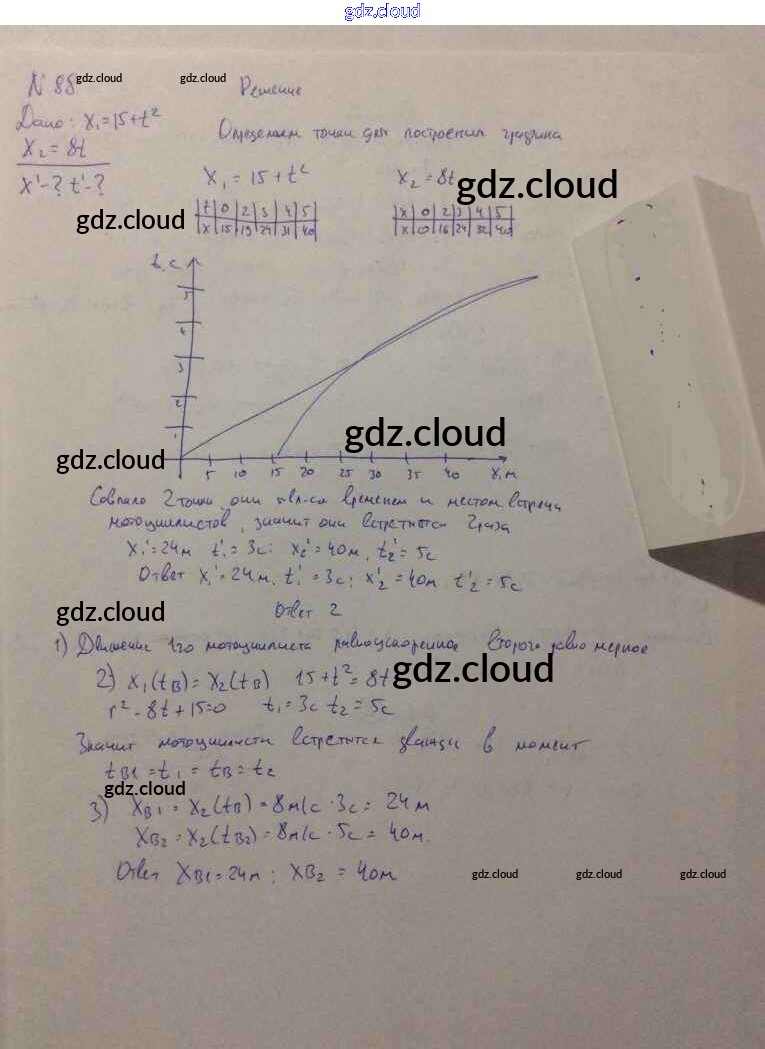 gdz.cloud
N 88 gdz.cloud gdz.cloud Решение
Дано: x₁=15+t²
Определяем точки для построения графика
x₂ = 8t
x'-? t'-?
x₁ = 15 + t² x₂ = 8t gdz.cloud
gdz.cloud
|t|0|2|3|4|5| |x|0|2|3|4|5|
|x|15|19|24|31|40| |x|0|16|24|32|40|
t, c
5
4
3
2
1
gdz.cloud
gdz.cloud
5 10 15 20 25 30 35 40 x, м
Совпало 2 точки они явл-ся временем и местом встречи
мотоциклистов, значит они встретятся 2 раза
x₁'=24м t₁'=3с; x₂'=40м, t₂'=5с
Ответ x₁'=24м, t₁'=3с; x₂'=40м t₂'=5с
gdz.cloud
Ответ 2
1) Движение 1го мотоциклиста равноускоренное второго равномерное
2) x₁(tв)=x₂(tв) 15+t²=8t gdz.cloud
t²-8t+15=0 t₁=3с t₂=5с
Значит мотоциклисты встретятся дважды в момент
tв1=t₁=tв=t₂
gdz.cloud
3) xв1=x₂(tв)=8м/с·3с=24м
xв2=x₂(tв2)=8м/с·5с=40м.
Ответ xв1=24м; xв2=40м
gdz.cloud gdz.cloud gdz.cloud